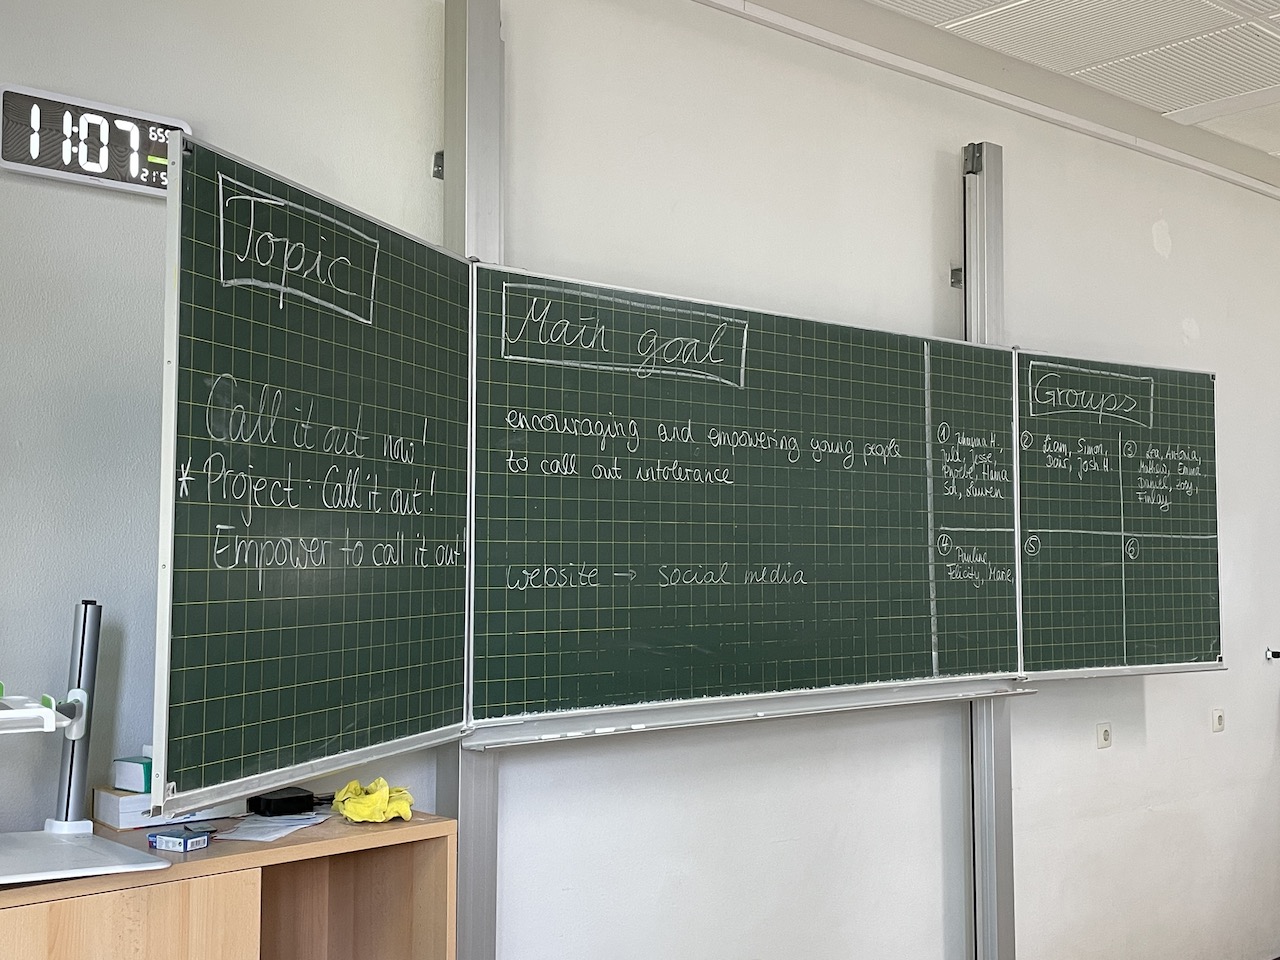 11:07
Topic
Call it out now!
* Project: Call it out!
Empower to call it out!
Main goal
encouraging and empowering young people
to call out intolerance
website → social media
① H.,
Juli, Jesse,
Phoebe, Hanna
Sol, Lauren
④ Pauline,
Felicity, Marie,
Groups
② Liam, Simon,
Josh H.
③ Antonia,
Mathew, Emma
Daniel, Zoey,
Finlay
⑤
⑥